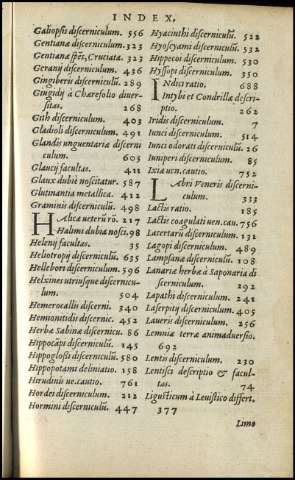 INDEX.
Galiopsis discerniculum. 556
Gentianæ discerniculum. 323
Gentianæ spēs, Cruciata. 323
Geranij discerniculum. 436
Gingiberis discerniculū. 289
Gingidij à Charefolio diuer-
sitas. 268
Gith discerniculum. 403
Gladioli discerniculum. 491
Glandis unguentaria discerni
culum. 605
Glaucij facultas. 411
Glaux dubiū noscitatur. 587
Glutinantia metallica. 412
Graminis discerniculū. 498
HAlica ueterū rō. 217
Halimus dubiā noscī. 98
Helenij facultas. 35
Heliotropij discerniculū. 635
Hellebori discerniculum. 596
Helxines utriusque discernicu-
lum. 504
Hemerocallis discerni. 340
Hemionitidis discernic. 452
Herbæ Sabinæ discernicu. 86
Hippocāpi discerniculū. 145
Hippoglossi discerniculū. 580
Hippopotami deliniatio. 158
Hirudinis ue.cautio. 761
Hordei discerniculum. 212
Hormini discerniculū. 447
Hyacinthi discerniculū. 522
Hyoscyami discerniculū. 532
Hippecoi discerniculum. 530
Hyssopi discerniculum. 350
INdici ratio. 688
Intybi et Condrillæ descri-
ptio. 262
Iridis discerniculum. 7
Iunci discerniculum. 514
Iunci odorati discerniculū. 26
Iuniperi discerniculum. 85
Ixia uen.cautio. 752
LAbri Veneris discerni-
culum. 333
Lactis ratio. 185
Lactis coagulati uen.cau. 756
Lacertarū discerniculum. 132
Lagopi discerniculum. 489
Lampsanæ discerniculū. 108
Lanariæ herbæ à Saponaria di
scerniculum. 292
Lapathi discerniculum. 241
Laserpitij discerniculum. 405
Laueris discerniculum. 256
Lemniæ terræ animaduersio.
692
Lentis discerniculum. 230
Lentisci descriptio & facul-
tas. 74
Ligusticum à Leuistico differt.
377
Limo